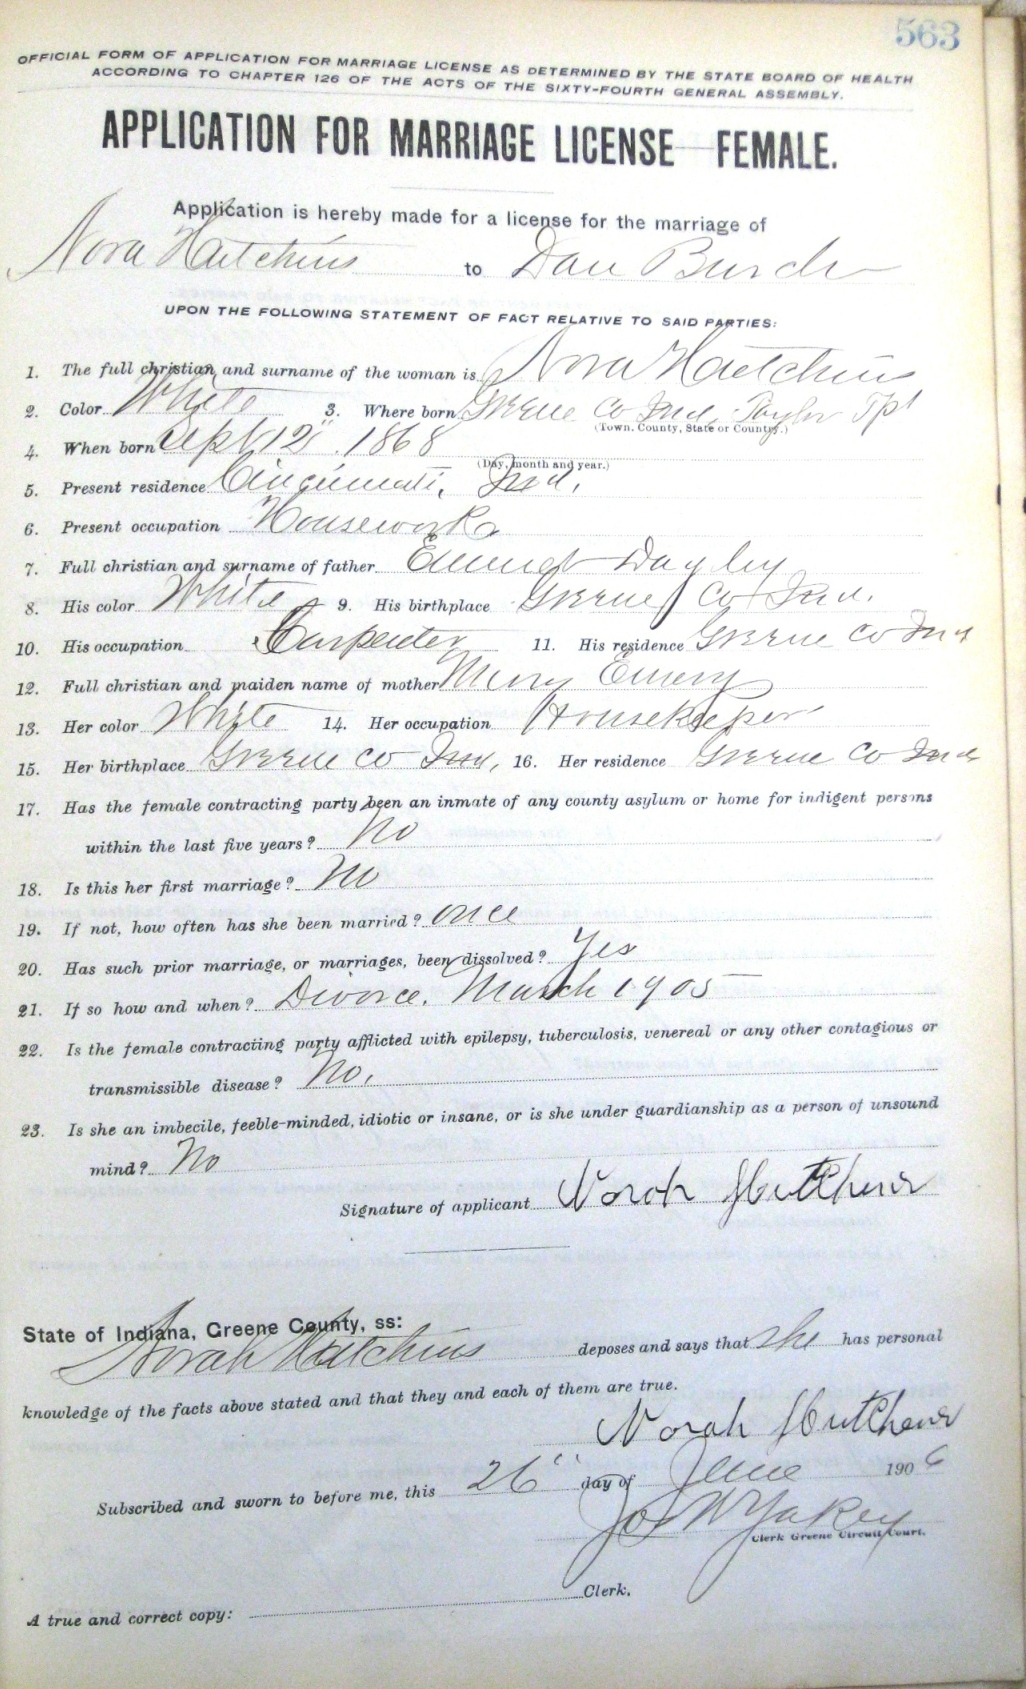 563
OFFICIAL FORM OF APPLICATION FOR MARRIAGE LICENSE AS DETERMINED BY THE STATE BOARD OF HEALTH
ACCORDING TO CHAPTER 126 OF THE ACTS OF THE SIXTY-FOURTH GENERAL ASSEMBLY.
APPLICATION FOR MARRIAGE LICENSE—FEMALE.
Application is hereby made for a license for the marriage of
Nora Hutchins to Dan Burch
UPON THE FOLLOWING STATEMENT OF FACT RELATIVE TO SAID PARTIES:
1. The full christian and surname of the woman is Nora Hutchins
2. Color White 3. Where born Greene Co Ind, Taylor Tpt
(Town. County, State or Country.)
4. When born Sept 12" 1868
(Day, month and year.)
5. Present residence Cincinnati, Ind.
6. Present occupation Housework
7. Full christian and surname of father Dagley
8. His color White 9. His birthplace Greene Co Ind.
10. His occupation Carpenter 11. His residence Greene Co Ind
12. Full christian and maiden name of mother Emery
13. Her color White 14. Her occupation Housekeeper
15. Her birthplace Greene Co Ind, 16. Her residence Greene Co Ind
17. Has the female contracting party been an inmate of any county asylum or home for indigent persons
within the last five years? No
18. Is this her first marriage? No
19. If not, how often has she been married? once
20. Has such prior marriage, or marriages, been dissolved? Yes
21. If so how and when? Divorce. March 1905
22. Is the female contracting party afflicted with epilepsy, tuberculosis, venereal or any other contagious or
transmissible disease? No.
23. Is she an imbecile, feeble-minded, idiotic or insane, or is she under guardianship as a person of unsound
mind? No
Signature of applicant Norah Hutchens
State of Indiana, Greene County, ss:
Norah Hutchins deposes and says that she has personal
knowledge of the facts above stated and that they and each of them are true.
Norah Hutchens
Subscribed and sworn to before me, this 26" day of June 1906
Jos W Yakey
Clerk Greene Circuit Court.
Clerk.
A true and correct copy: